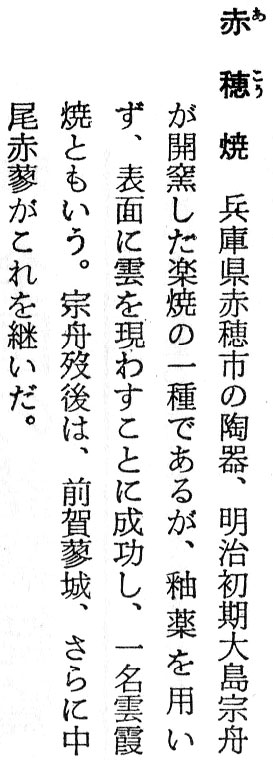 赤穂焼　兵庫県赤穂市の陶器、明治初期大島宗舟
が開窯した楽焼の一種であるが、釉薬を用い
ず、表面に雲を現わすことに成功し、一名雲霞
焼ともいう。宗舟歿後は、前賀蓼城、さらに中
尾赤蓼がこれを継いだ。
あこう